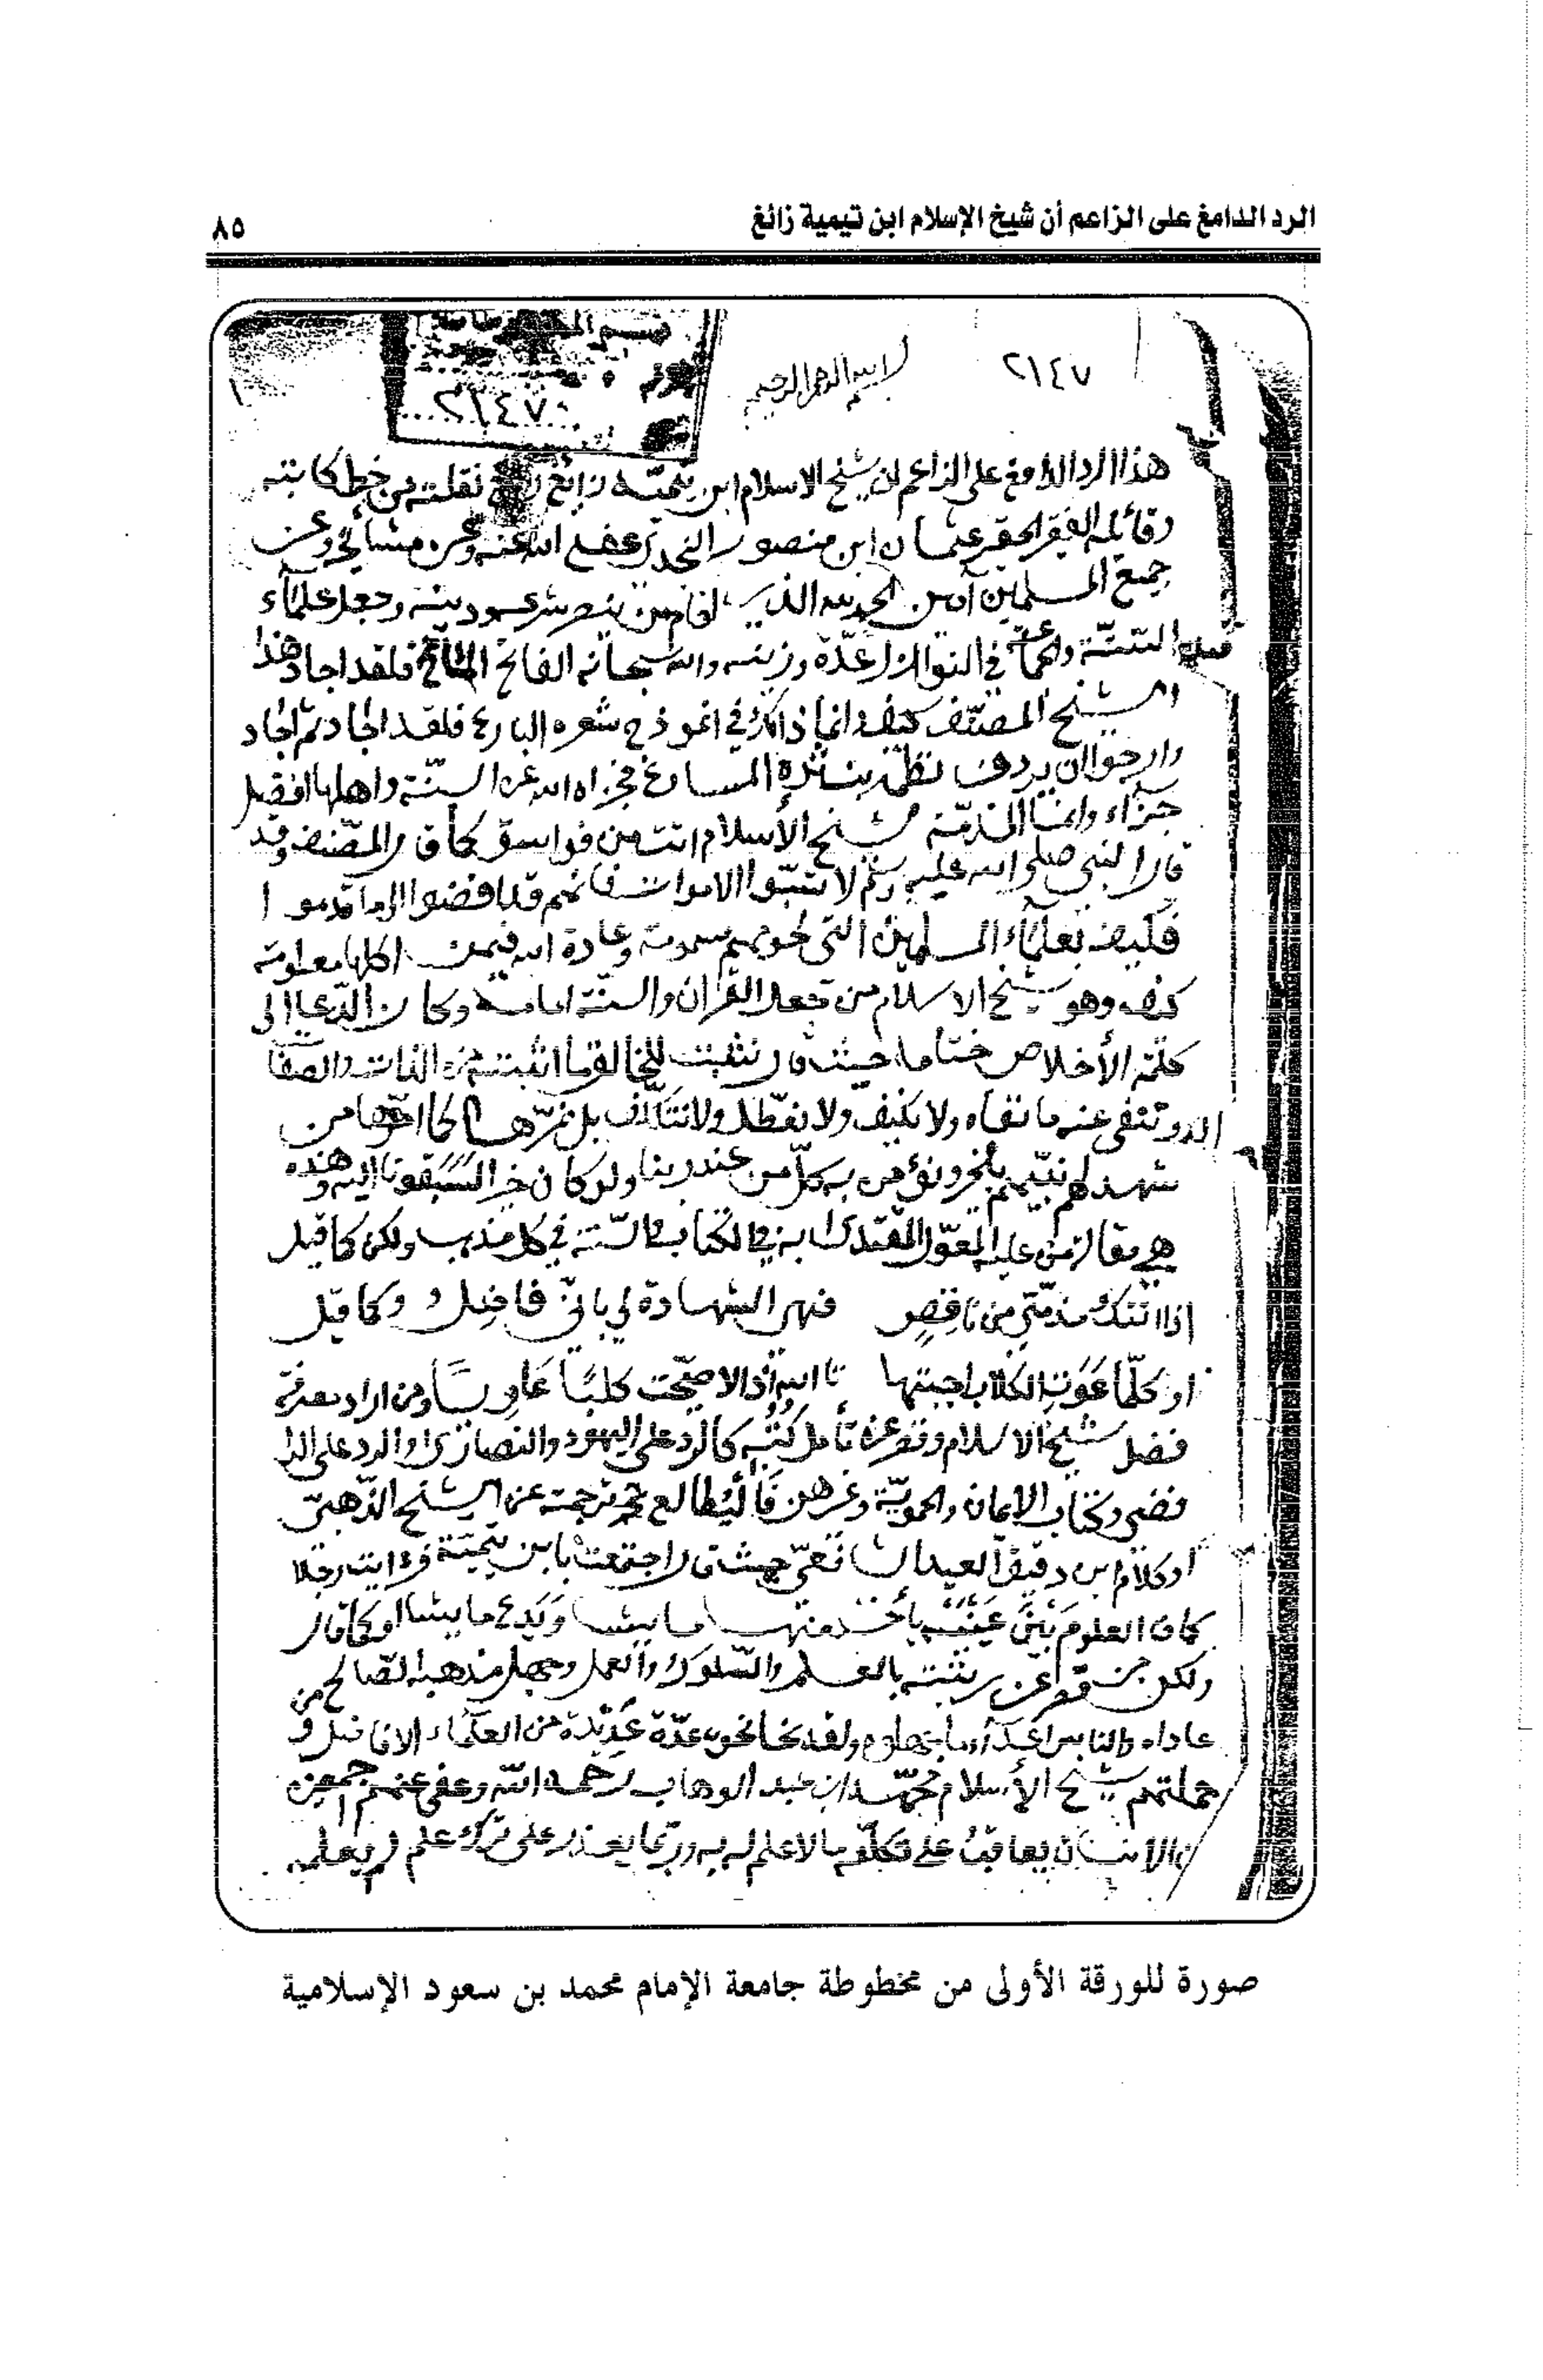 الرد الدامغ على الزاعم أن شيخ الإسلام ابن تيمية زائغ
٨٥
٢١٤٧
٢١٤٧
بسم الله الرحمن الرحيم
هذا الرد الدامغ على الزاعم ان شيخ الاسلام ابن تيميّة زايغ نقلته من خط كاتبه
وقائله الفقير الحقير عثمان ابن منصور النجدي عفى الله عنه وعن مشائخه وعن
جميع المسلمين آمين الحمد لله الذي اقام من ينصر شرعه ودينه وجعل علمآء
السّنّة في النوازل عدّة وزينه والله سبحانه الفاتح فلقد اجاد هذا
الشيخ المصنّف في انموذج شعره البارع فلقد اجاد ثم اجاد
وارجوا ان يردف نظمه بنثره فجزاه الله عن السّنّة واهلها افضل
جزاء وامّا شيخ الأسلام من فواسق كما قال المصّنف وقد
قال النبي صلى الله عليه وسلم لا تسّبوا الاموات فانهم قد افضوا الى ما قدموا
فكيف بعلمآء المسلمين التي لحومهم مسمومة وعادة الله فيمن اكلها معلومة
كيف وهو شيخ الاسلام من جعل القرآن والسنّة امامه وكان الدّعا الى
كلمة الأخلاص ختامه حيث قال نثبت للخالق ما اثبته من الذات والصفا
وننفي عنه ما نفاه ولا نكيّف ولا نعطّل ولا بل نمرّها كما اقرّها من
شهد لهم نبيّهم بالخير ونؤمن به كلّ من عند ربنا ولو كان خيرا لسبقونا اليه وهذه
هي مقالة من عليه المعوّل في كل مذهب ولكن كما قيل
اذا اتتك مذمّتي من ناقصٍ فهي الشهادة لي باني فاضل وكما قيل
او كلّما عَوَتِ الكلاب اجبتها تا الله اذا لاصبحت كلباً عَاوِياً ومن اراد معرفة
فضل شيخ الاسلام تأمل كُتُبه كالرد على اليهود والنصارى والرد على الرا
فضي وكتاب الايمان والحمويّة وغيرهن فَاليُطالع ترجمته عن الشيخ الذّهبي
او كلام ابن دقيق العيد الشافعيّ حيث قال اجتمعت بابن تيميّة فرايت رجلا
كان العلوم بَيْن عَينَيْه يأخذ منها ما يشا ويَدع ما يشا او كما قال
ولكن من بالعلم والسّلوك والعمل وجهل مذهب الصّالح من
عاداه والناس اعدآء ما جهلوه ولقد نحا نحوه عدّة عَديدة من العلمآء الافاضل و
جملتهم شيخ الأسلام محمّد ابن عبد الوهاب رحمه الله وعفى عنهم اجمعين
والانسان يعاقبُ على تكلّمه بما لا علم له به وربّما يعذر على ترك علم لم يعلمه
صورة للورقة الأولى من مخطوطة جامعة الإمام محمد بن سعود الإسلامية